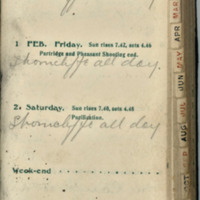 1 FEB. Friday. Sun rises 7.42, sets 4.46
Partridge and Pheasant Shooting end.
Shorncliffe all day.
2. Saturday. Sun rises 7.40, sets 4.48
Purification.
Shorncliffe all day
Week-end
MAR
APR
MAY
JUN
JUL
AUG